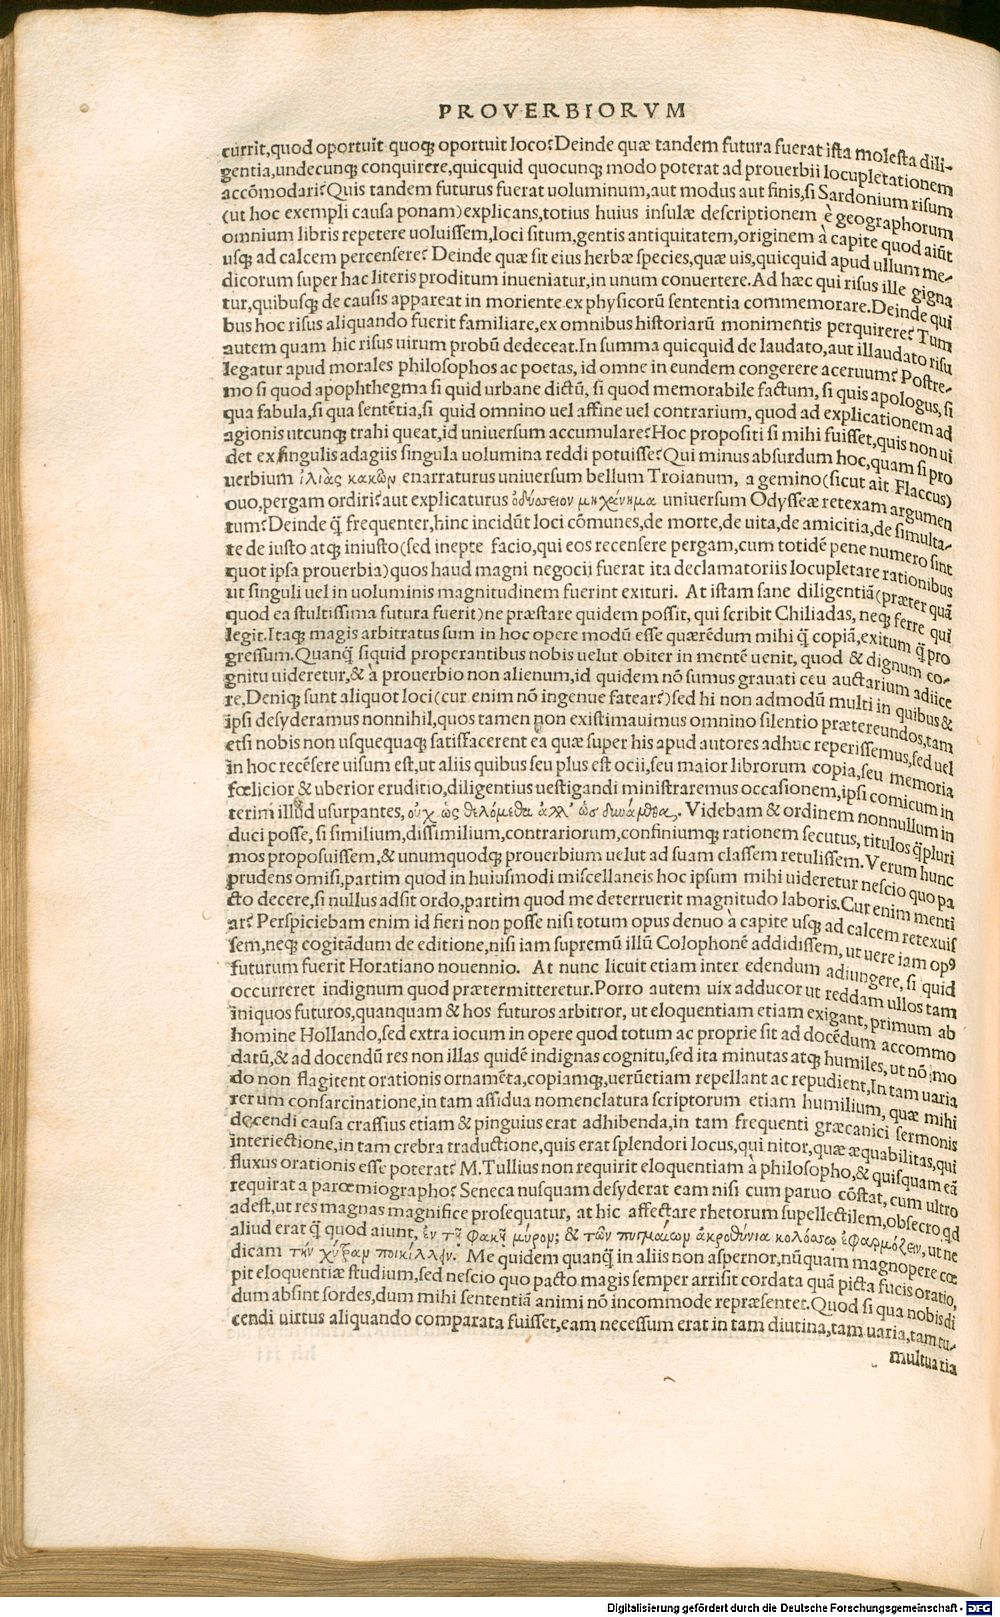 PROVERBIORVM
currit,quod oportuit quoqꝫ oportuit loco?Deinde quæ tandem futura fuerat ista molesta dili-
gentia,undecunqꝫ conquirere,quicquid quocunqꝫ modo poterat ad prouerbii locupletationem
accōmodari?Quis tandem futurus fuerat uoluminum,aut modus aut finis,si Sardonium risum
(ut hoc exempli causa ponam)explicans,totius huius insulæ descriptionem è geographorum
omnium libris repetere uoluissem,loci situm,gentis antiquitatem,originem à capite quod aiūt
usqꝫ ad calcem percensere? Deinde quæ sit eius herbæ species,quæ uis,quicquid apud ullum me-
dicorum super hac literis proditum inueniatur,in unum conuertere.Ad hæc qui risus ille gigna
tur,quibusqꝫ de causis appareat in moriente ex physicorū sententia commemorare.Deinde qui
bus hoc risus aliquando fuerit familiare,ex omnibus historiarū monimentis perquirere? Tum
autem quam hic risus uirum probū dedeceat.In summa quicquid de laudato,aut illaudato risu
legatur apud morales philosophos ac poetas, id omne in eundem congerere aceruum? Postre-
mo si quod apophthegma si quid urbane dictū, si quod memorabile factum, si quis apologus, si
qua fabula,si qua sentētia,si quid omnino uel affine uel contrarium, quod ad explicationem ad
agionis utcunqꝫ trahi queat,id uniuersum accumulare?Hoc propositi si mihi fuisset,quis non ui
det ex singulis adagiis singula uolumina reddi potuisse?Qui minus absurdum hoc,quam si pro
uerbium ἰλιὰς κακῶν enarraturus uniuersum bellum Troianum, a gemino(sicut ait Flaccus)
ouo,pergam ordiri?aut explicaturus ὀδύσσειον μηχάνημα uniuersum Odysseæ retexam argumen
tum?Deinde q̄ frequenter,hinc incidūt loci cōmunes,de morte,de uita,de amicitia,de simulta-
te de iusto atqꝫ iniusto(sed inepte facio,qui eos recensere pergam,cum totidē pene numero sint
quot ipsa prouerbia)quos haud magni negocii fuerat ita declamatoriis locupletare rationibus
ut singuli uel in uoluminis magnitudinem fuerint exituri. At istam sane diligentiā(præter quā
quod ea stultissima futura fuerit)ne præstare quidem possit, qui scribit Chiliadas, neqꝫ ferre qui
legit.Itaqꝫ magis arbitratus sum in hoc opere modū esse quærēdum mihi q̄ copiā,exitum q̄ pro
gressum.Quanq̄ siquid properantibus nobis uelut obiter in mentē uenit, quod & dignum co-
gnitu uideretur,& à prouerbio non alienum,id quidem nō sumus grauati ceu auctarium adiice
re.Deniqꝫ sunt aliquot loci(cur enim nō ingenue fatear?)sed hi non admodū multi in quibus &
ipsi desyderamus nonnihil,quos tamen non existimauimus omnino silentio prætereundos,tam
etsi nobis non usquequaqꝫ satisfacerent ea quæ super his apud autores adhuc reperissemus,sed uel
in hoc recēsere uisum est,ut aliis quibus seu plus est ocii,seu maior librorum copia,seu memoria
fœlicior & uberior eruditio,diligentius uestigandi ministraremus occasionem,ipsi comicum in
terim illud usurpantes, οὐχ ὡς θελόμεθα ἀλλ' ὡσ δυνάμεθα,. Videbam & ordinem nonnullum in
duci posse, si similium,dissimilium,contrariorum,confiniumqꝫ rationem secutus, titulos q̄pluri
mos proposuissem,& unumquodqꝫ prouerbium uelut ad suam classem retulissem. Verum hunc
prudens omisi,partim quod in huiusmodi miscellaneis hoc ipsum mihi uideretur nescio quo pa
cto decere,si nullus adsit ordo,partim quod me deterruerit magnitudo laboris.Cur enim menti
ar? Perspiciebam enim id fieri non posse nisi totum opus denuo à capite usqꝫ ad calcem retexuis
sem,neqꝫ cogitādum de editione,nisi iam supremū illū Colophonē addidissem, ut uere iam opꝰ
futurum fuerit Horatiano nouennio. At nunc licuit etiam inter edendum adiungere, si quid
occurreret indignum quod prætermitteretur.Porro autem uix adducor ut reddam ullos tam
iniquos futuros,quanquam & hos futuros arbitror, ut eloquentiam etiam exigant,primum ab
homine Hollando,sed extra iocum in opere quod totum ac proprie sit ad docēdum accommo
datū,& ad docendū res non illas quidē indignas cognitu,sed ita minutas atqꝫ humiles,ut nō mo
do non flagitent orationis ornamēta,copiamqꝫ,uerūetiam repellant ac repudient,In tam uaria
rerum consarcinatione,in tam assidua nomenclatura scriptorum etiam humilium, quæ mihi
decendi causa crassius etiam & pinguius erat adhibenda,in tam frequenti græcanici sermonis
interiectione,in tam crebra traductione,quis erat splendori locus,qui nitor,quæ æquabilitas,qui
fluxus orationis esse poterat? M.Tullius non requirit eloquentiam à philosopho,& quisquam eā
requirat a parœmiographo? Seneca nusquam desyderat eam nisi cum paruo cōstat, cum ultro
adest,ut res magnas magnifice prosequatur, at hic affectare rhetorum supellectilem,obsecro,qd
aliud erat q̄ quod aiunt, ἐν τῇ φακῇ μύρον; & τῶν πυγμαίων ἀκροθίνια κολόσσῳ ἐφαρμόζειν, ut ne
dicam τὴν χύτραν ποικίλλειν. Me quidem quanq̄ in aliis non aspernor,nūquam magnopere cœ
pit eloquentiæ studium,sed nescio quo pacto magis semper arrisit cordata quā picta fucis oratio,
dum absint sordes,dum mihi sententiā animi nō incommode repræsentet.Quod si qua nobis di
cendi uirtus aliquando comparata fuisset,eam necessum erat in tam diutina,tam uaria,tam tu-
multuaria
Digitalisierung gefördert durch die Deutsche Forschungsgemeinschaft - DFG